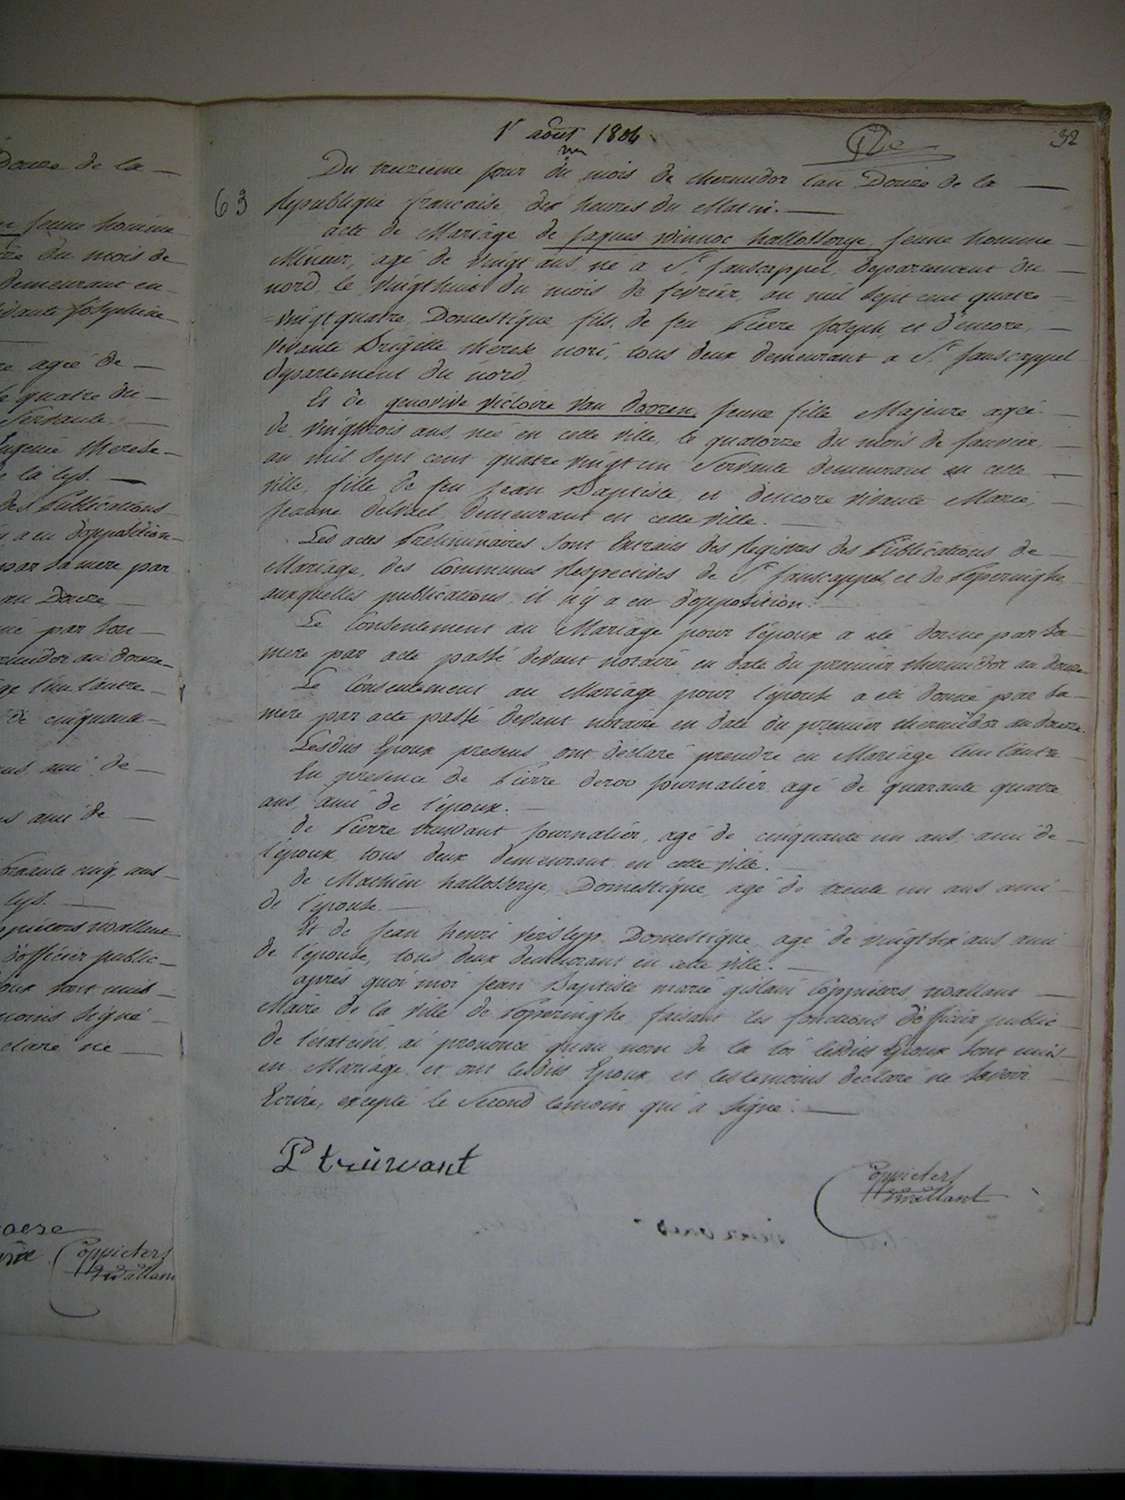 Douze de la —
jeune homme
du mois de
demeurant en
vivante Josephine
agée de —
quatre du —
Servante —
Eugenie therese —
la lys. —
des Publications
a eu d'opposition —
par sa mere par
an Douze —
par son —
l'un l'autre —
de cinquante —
ami de —
ami de —
trente cinq ans —
lys. —
d'officier public —
sont unis —
signé —
declaré ne —
Coppieters
Wallant
1r août 1804
32
63
Du treizieme jour du mois de thermidor l'an Douze de la —
Republique francaise, dix heures du Matin. —
acte de Mariage de Jaques Winnoc hallosserye, jeune homme —
Mineur, agé de vingt ans, né à St. Janscappel, departement du —
nord, le vingthuit du mois de fevrier, an mil sept cent quatre —
vingtquatre, Domestique, fils de feu Pierre Joseph, et d'encore, —
vivante Brigitte therese nori, tous deux demeurant a St. Janscappel
departement du nord
Et de genovive victoire Van dooren, jeune fille Majeure agée —
de vingttrois ans, née en cette ville, le quatorze du mois de janvier,
an mil sept cent quatre vingt un Servante demeurant en cette —
ville, fille de feu Jean Baptiste, et d'encore vivante Marie, —
jeanne demeurant en cette ville. —
Les actes Preliminaires sont Extraits des Registres des Publications de —
Mariage, des communes Respectives de St. Janscappel et de Poperinghe
auxquelles publications, il n'y a eu d'opposition. —
Le Consentement au Mariage pour l'époux a eté donné par sa —
mere par acte passé devant notaire en date du premier thermidor an douze
Le Consentement au Mariage pour l'épouse a eté donné par sa —
mere par acte passé devant notaire en date du premier thermidor an douze.
Lesdits Epoux presens ont declaré prendre en Mariage l'un l'autre
En presence de Pierre deroo journalier agé de quarante quatre
ans, ami de l'époux. —
de Pierre truwant journalier, agé de cinquante un ans, ami de —
l'époux, tous deux demeurant en cette ville. —
de Mathieu hallosserye, Domestique, agé de trente un ans ami —
de l'épouse —
Et de Jean henri verslyp Domestique, agé de vingtsix ans ami
de l'épouse, tous deux demeurant en cette ville. —
après quoi moi Jean Baptiste marie gislain Coppieters wallant —
Maire de la ville de Poperinghe faisant les fonctions d'officier public —
de l'étatcivil, ai prononcé qu'au nom de la loi lesdits Epoux sont unis —
en Mariage et ont lesdits Epoux, et les temoins declaré ne savoir
Ecrire, excepté le Second temoin qui a signé. —
P truwant
Coppieters
Wallant